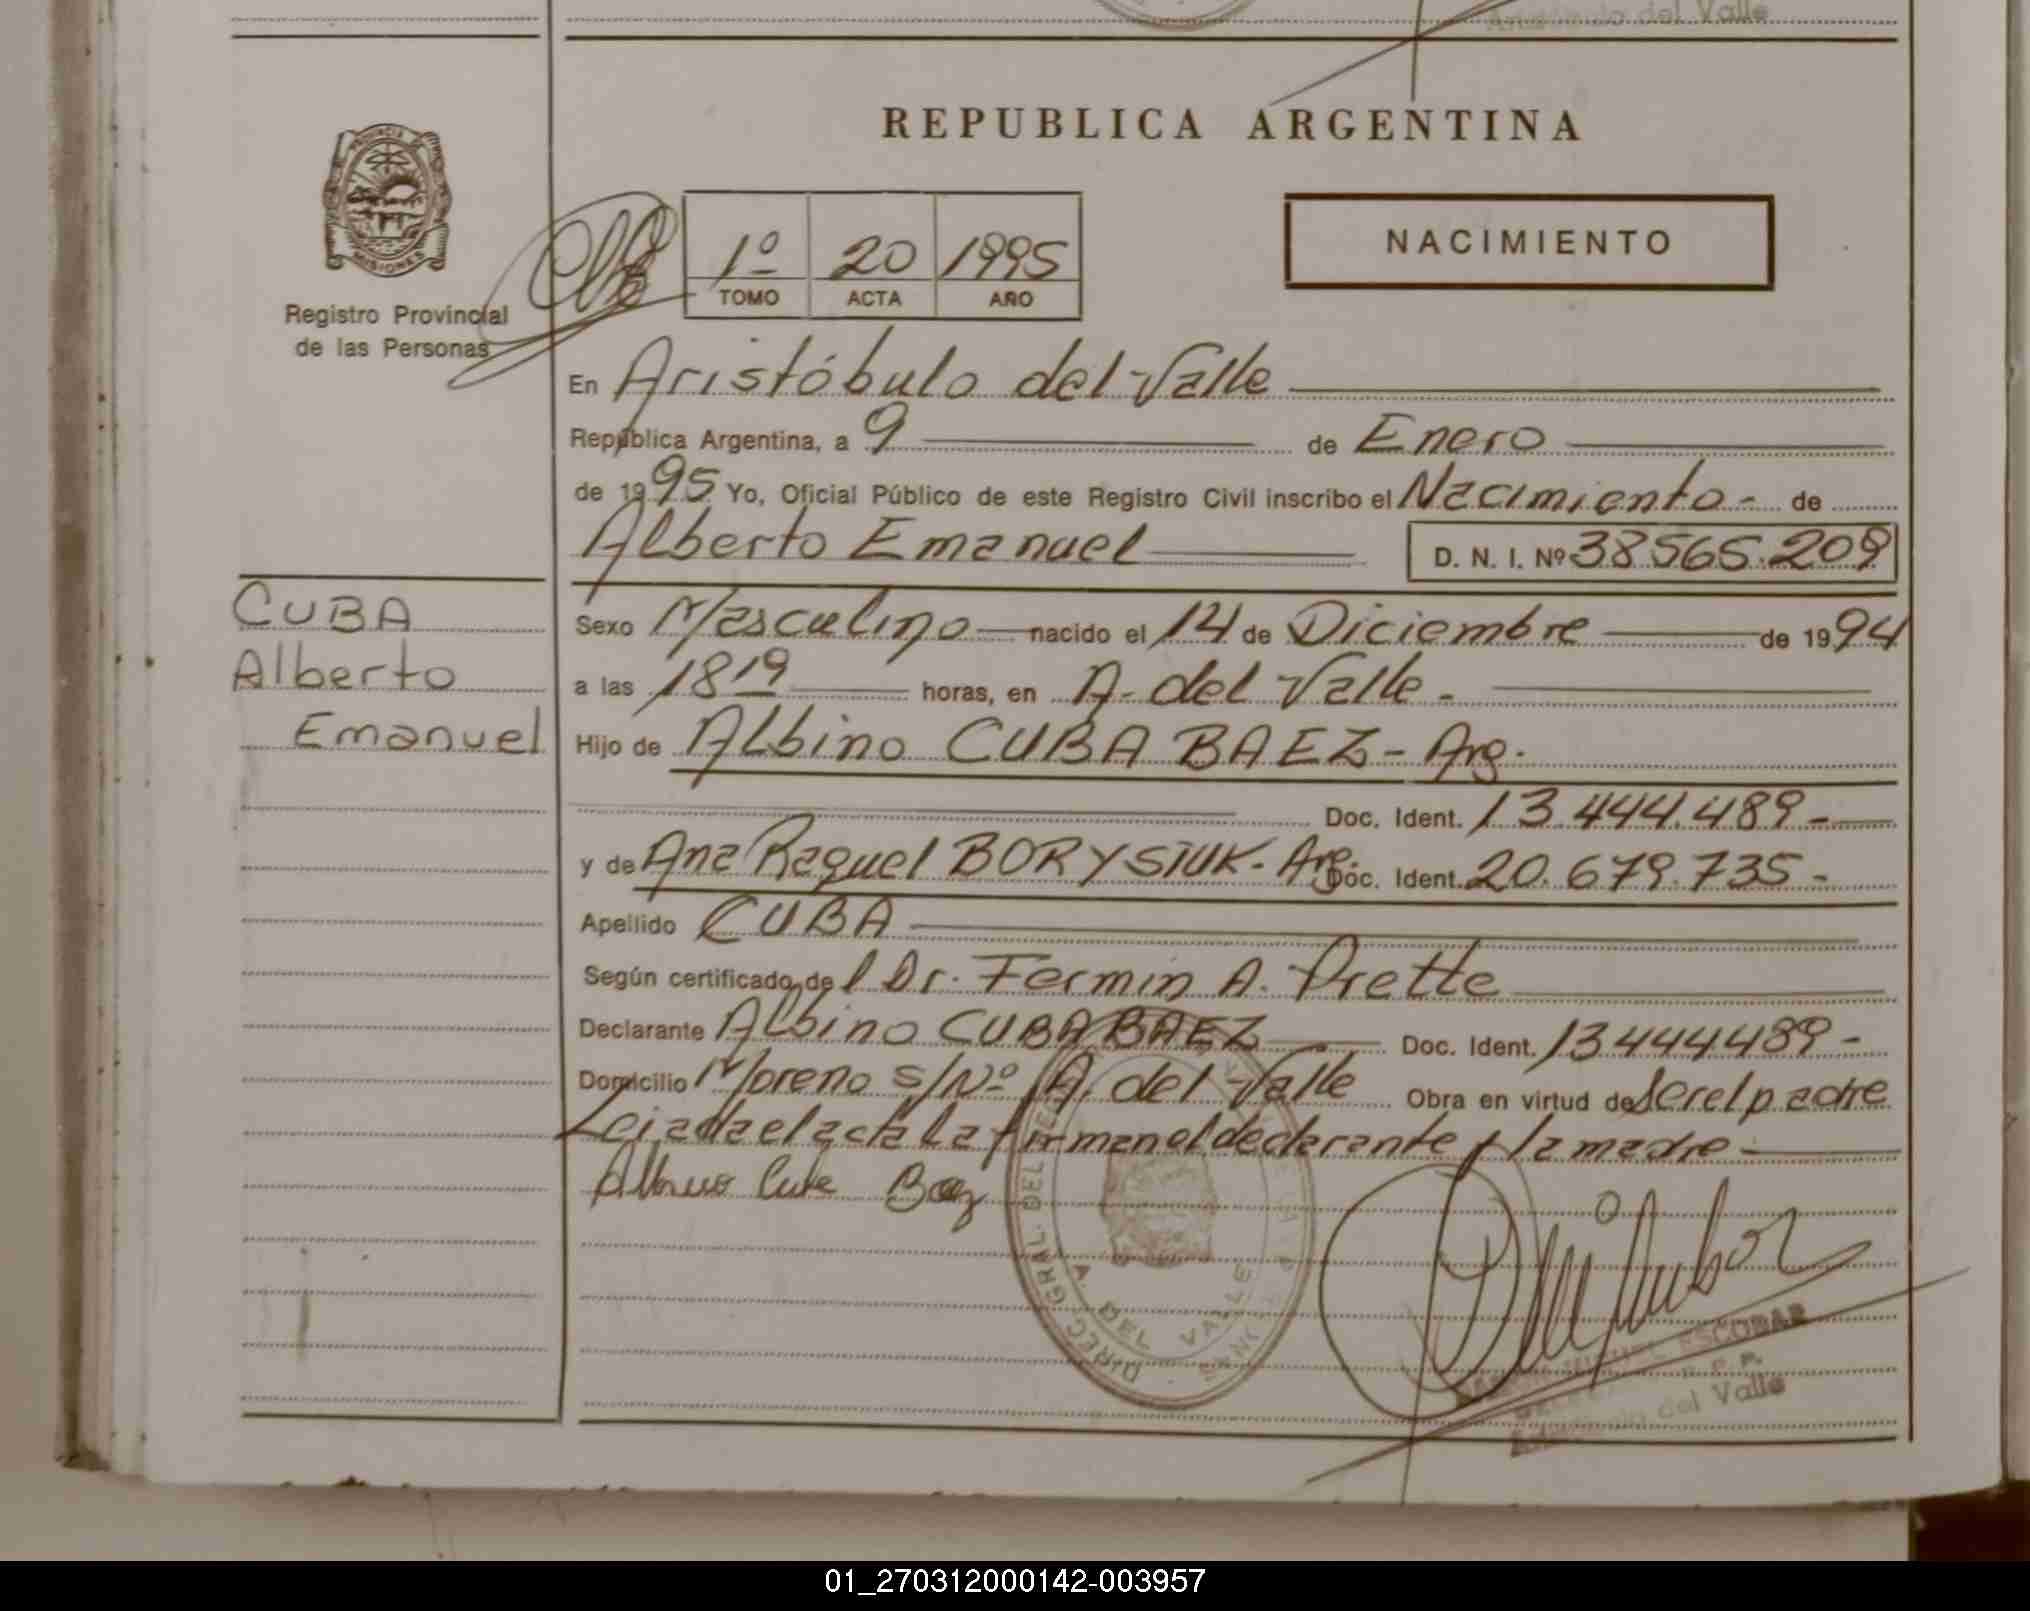 Aristóbulo del Valle
REPUBLICA ARGENTINA
PROVINCIA DE
MISIONES
Registro Provincial
de las Personas
1º 20 1995
TOMO ACTA AÑO
NACIMIENTO
En Aristóbulo del Valle
República Argentina, a 9 de Enero
de 1995 Yo, Oficial Público de este Registro Civil inscribo el Nacimiento - de
Alberto Emanuel D. N. I. Nº 38565.209
CUBA
Alberto
Emanuel
Sexo Masculino nacido el 14 de Diciembre de 1994
a las 18 19 horas, en A. del Valle -
Hijo de Albino CUBA BAEZ - Arg.
Doc. Ident. 13.444.489 -
y de Ana Raquel BORYSIUK - Arg. Doc. Ident. 20.679.735 -
Apellido CUBA
Según certificado de l Dr. Fermin A. Prette
Declarante Albino CUBA BAEZ Doc. Ident. 13444489 -
Domicilio Moreno s/Nº A. del Valle Obra en virtud de ser el padre
Leida el acta la firman el declarante y la madre -
Albino Cuba Baez
DIREC. GRAL. DEL
A. DEL VALLE
MIGUEL ESCOBAR
R. P. P.
del Valle
01_270312000142-003957